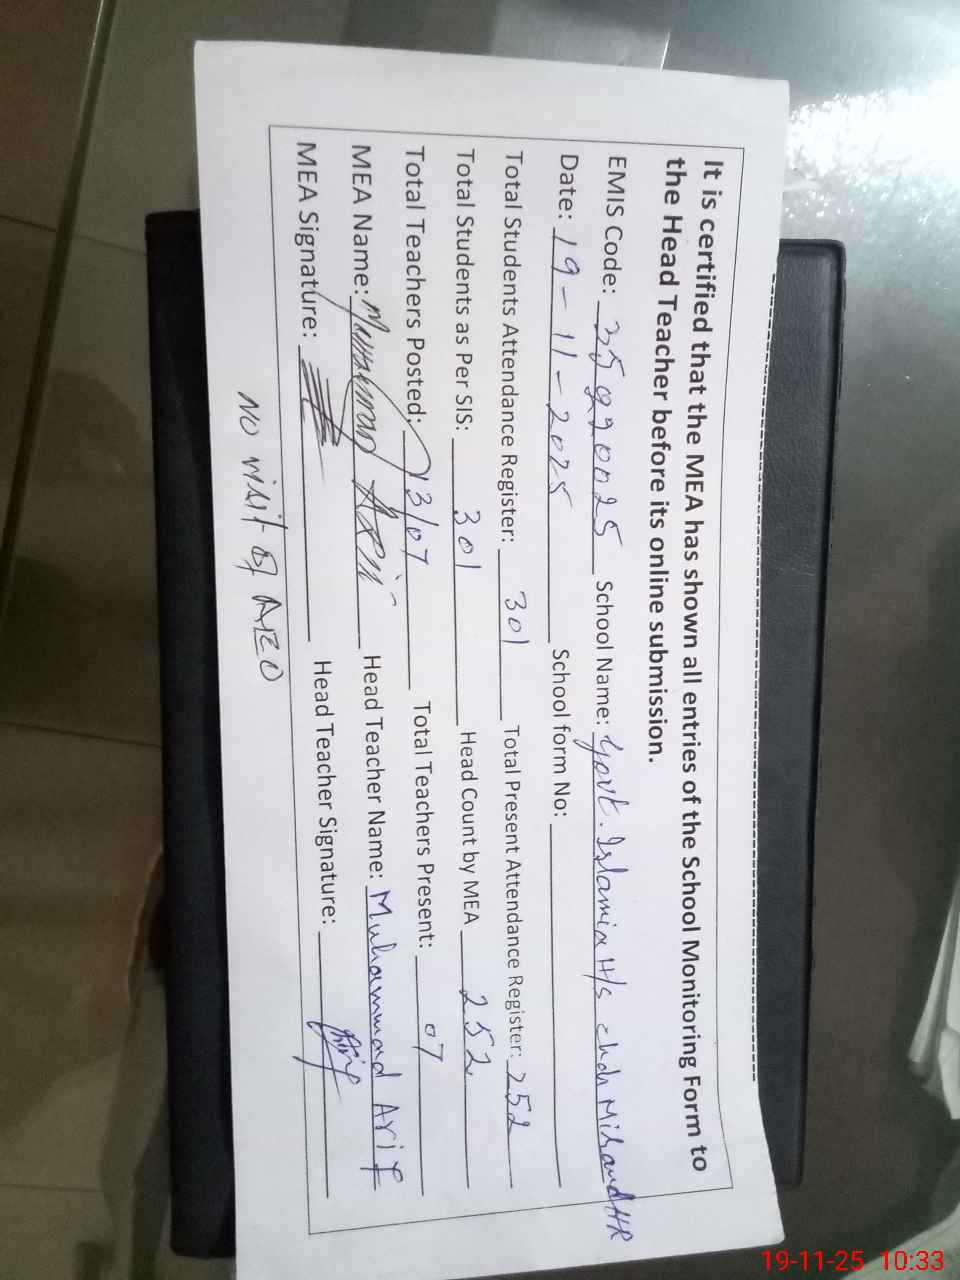 It is certified that the MEA has shown all entries of the School Monitoring Form to
the Head Teacher before its online submission.
EMIS Code: 35920025 School Name: Govt. Islamia H/s
Date: 19-11-2025 School form No:
Total Students Attendance Register: 301 Total Present Attendance Register: 252
Total Students as Per SIS: 301 Head Count by MEA 252
Total Teachers Posted: 13/07 Total Teachers Present: 07
MEA Name: Head Teacher Name: Muhammad Arif
MEA Signature: Head Teacher Signature: Arif
NO visit of AEO
19-11-25 10:33